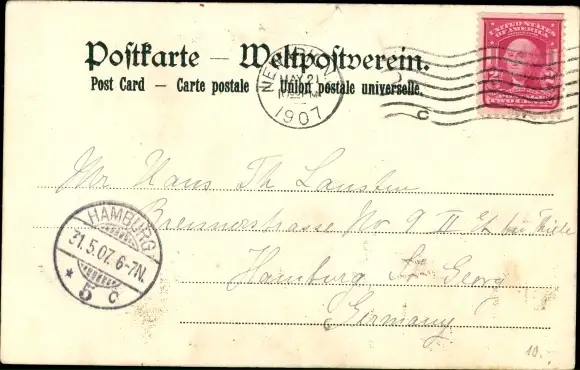 Postkarte — Weltpostverein.
Post Card — Carte postale — Union postale universelle.
MAY 21
1907
UNITED STATES
OF AMERICA
Mr Hans Th Lausten
Bremerstrasse No 9 II Et bei Thiele
Hamburg St Georg
Germany
HAMBURG
31.5.07. 6-7N.
* 5 c
10.-